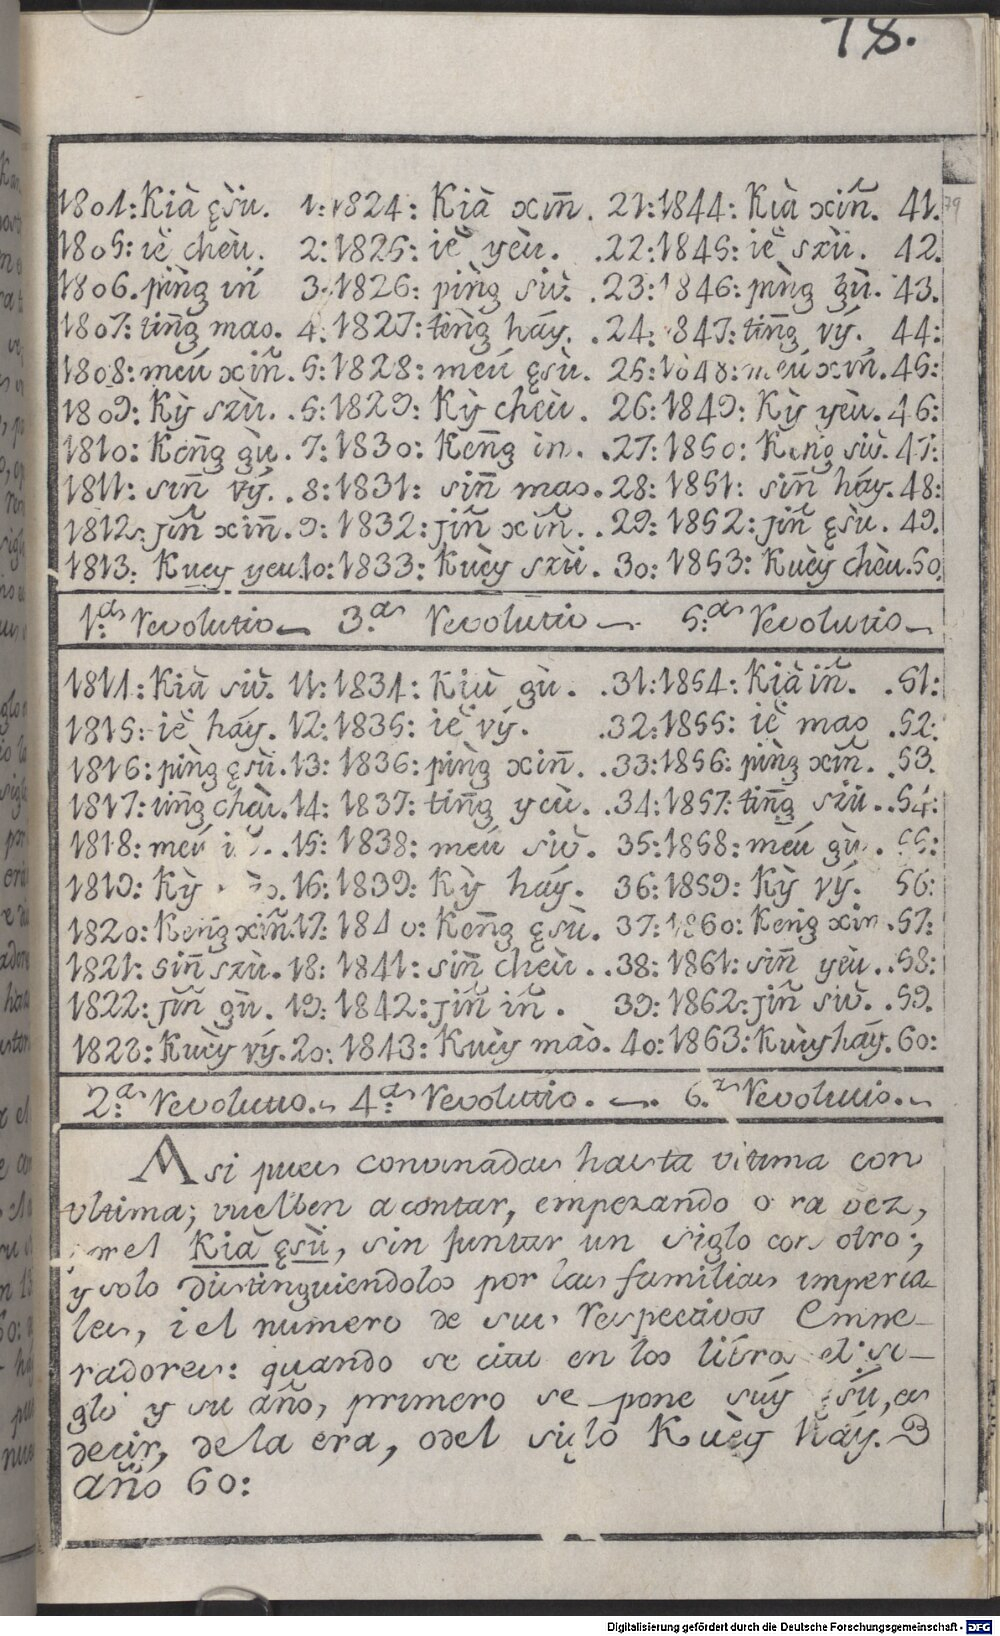 78.
79
1804: Kià çù. 1: 1824: Kià xiñ. 21: 1844: Kià xiñ. 41.
1805: iĕ cheù. 2: 1825: iĕ yeù. 22: 1845: iĕ szù. 42.
1806. pìng iń 3. 1826: pìng siŭ. 23: 1846: pìng gù. 43.
1807: tiñg mao. 4. 1827: tiñg háy. 24: 847: tiñg vý. 44:
1808: meú xiñ. 5: 1828: meú çsù. 25: 1848: meú xiñ. 45:
1809: Kỳ szù. 6: 1829: Kỳ cheù. 26: 1849: Kỳ yeù. 46:
1810: Keñg gù. 7: 1830: Keñg in. 27: 1850: Keng siŭ. 47:
1811: siñ vý. 8: 1831: siñ mao. 28: 1851: siñ háy. 48:
1812: jiñ xiñ. 9: 1832: jiñ xiñ. 29: 1852: jiñ çsù. 49.
1813: Kuey yeu. 10: 1833: Kuèy szù. 30: 1853: Kuèy cheù. 50.
1.as Revolutio 3.as Revolutio 5.as Revolutio
1814: Kià siŭ. 11: 1834: Kià gù. 31: 1854: Kià iñ. 51:
1815: iĕ háy. 12: 1835: iĕ vý. 32: 1855: iĕ mao 52:
1816: pìng çsù. 13: 1836: pìng xiñ. 33: 1856: pìng xiñ. 53.
1817: tiñg cheù. 14: 1837: tiñg yeù. 34: 1857: tiñg szù. 54:
1818: meú i 15: 1838: meú siŭ. 35: 1858: meú gù. 55:
1819: Kỳ 16: 1839: Kỳ háy. 36: 1859: Kỳ vý. 56:
1820: Keng xiñ. 17: 1840: Keñg çsù. 37: 1860: Keng xin. 57:
1821: siñ szù. 18: 1841: siñ cheù. 38: 1861: siñ yeù. 58:
1822: jiñ gù. 19: 1842: jiñ iñ. 39: 1862: jiñ siŭ. 59.
1823: Kuèy vý. 20: 1843: Kuèy mào. 40: 1863: Kuèy háy. 60:
2.as Revolutio. 4.as Revolutio. 6.as Revolutio.
Asi pues convinadas hasta vltima con
vltima; vuelben a contar, empezando o ra vez,
en el Kià çsù, sin juntar un siglo con otro;
y solo distinguiendolos por las familias imperia-
les, i el numero de sus respectivos Empe-
radores: quando se cita en los libros el si-
glo y su año, primero se pone súy çsù, es
decir, de la era, o del siglo Kuèy háy. D
año 60:
Digitalisierung gefördert durch die Deutsche Forschungsgemeinschaft - DFG